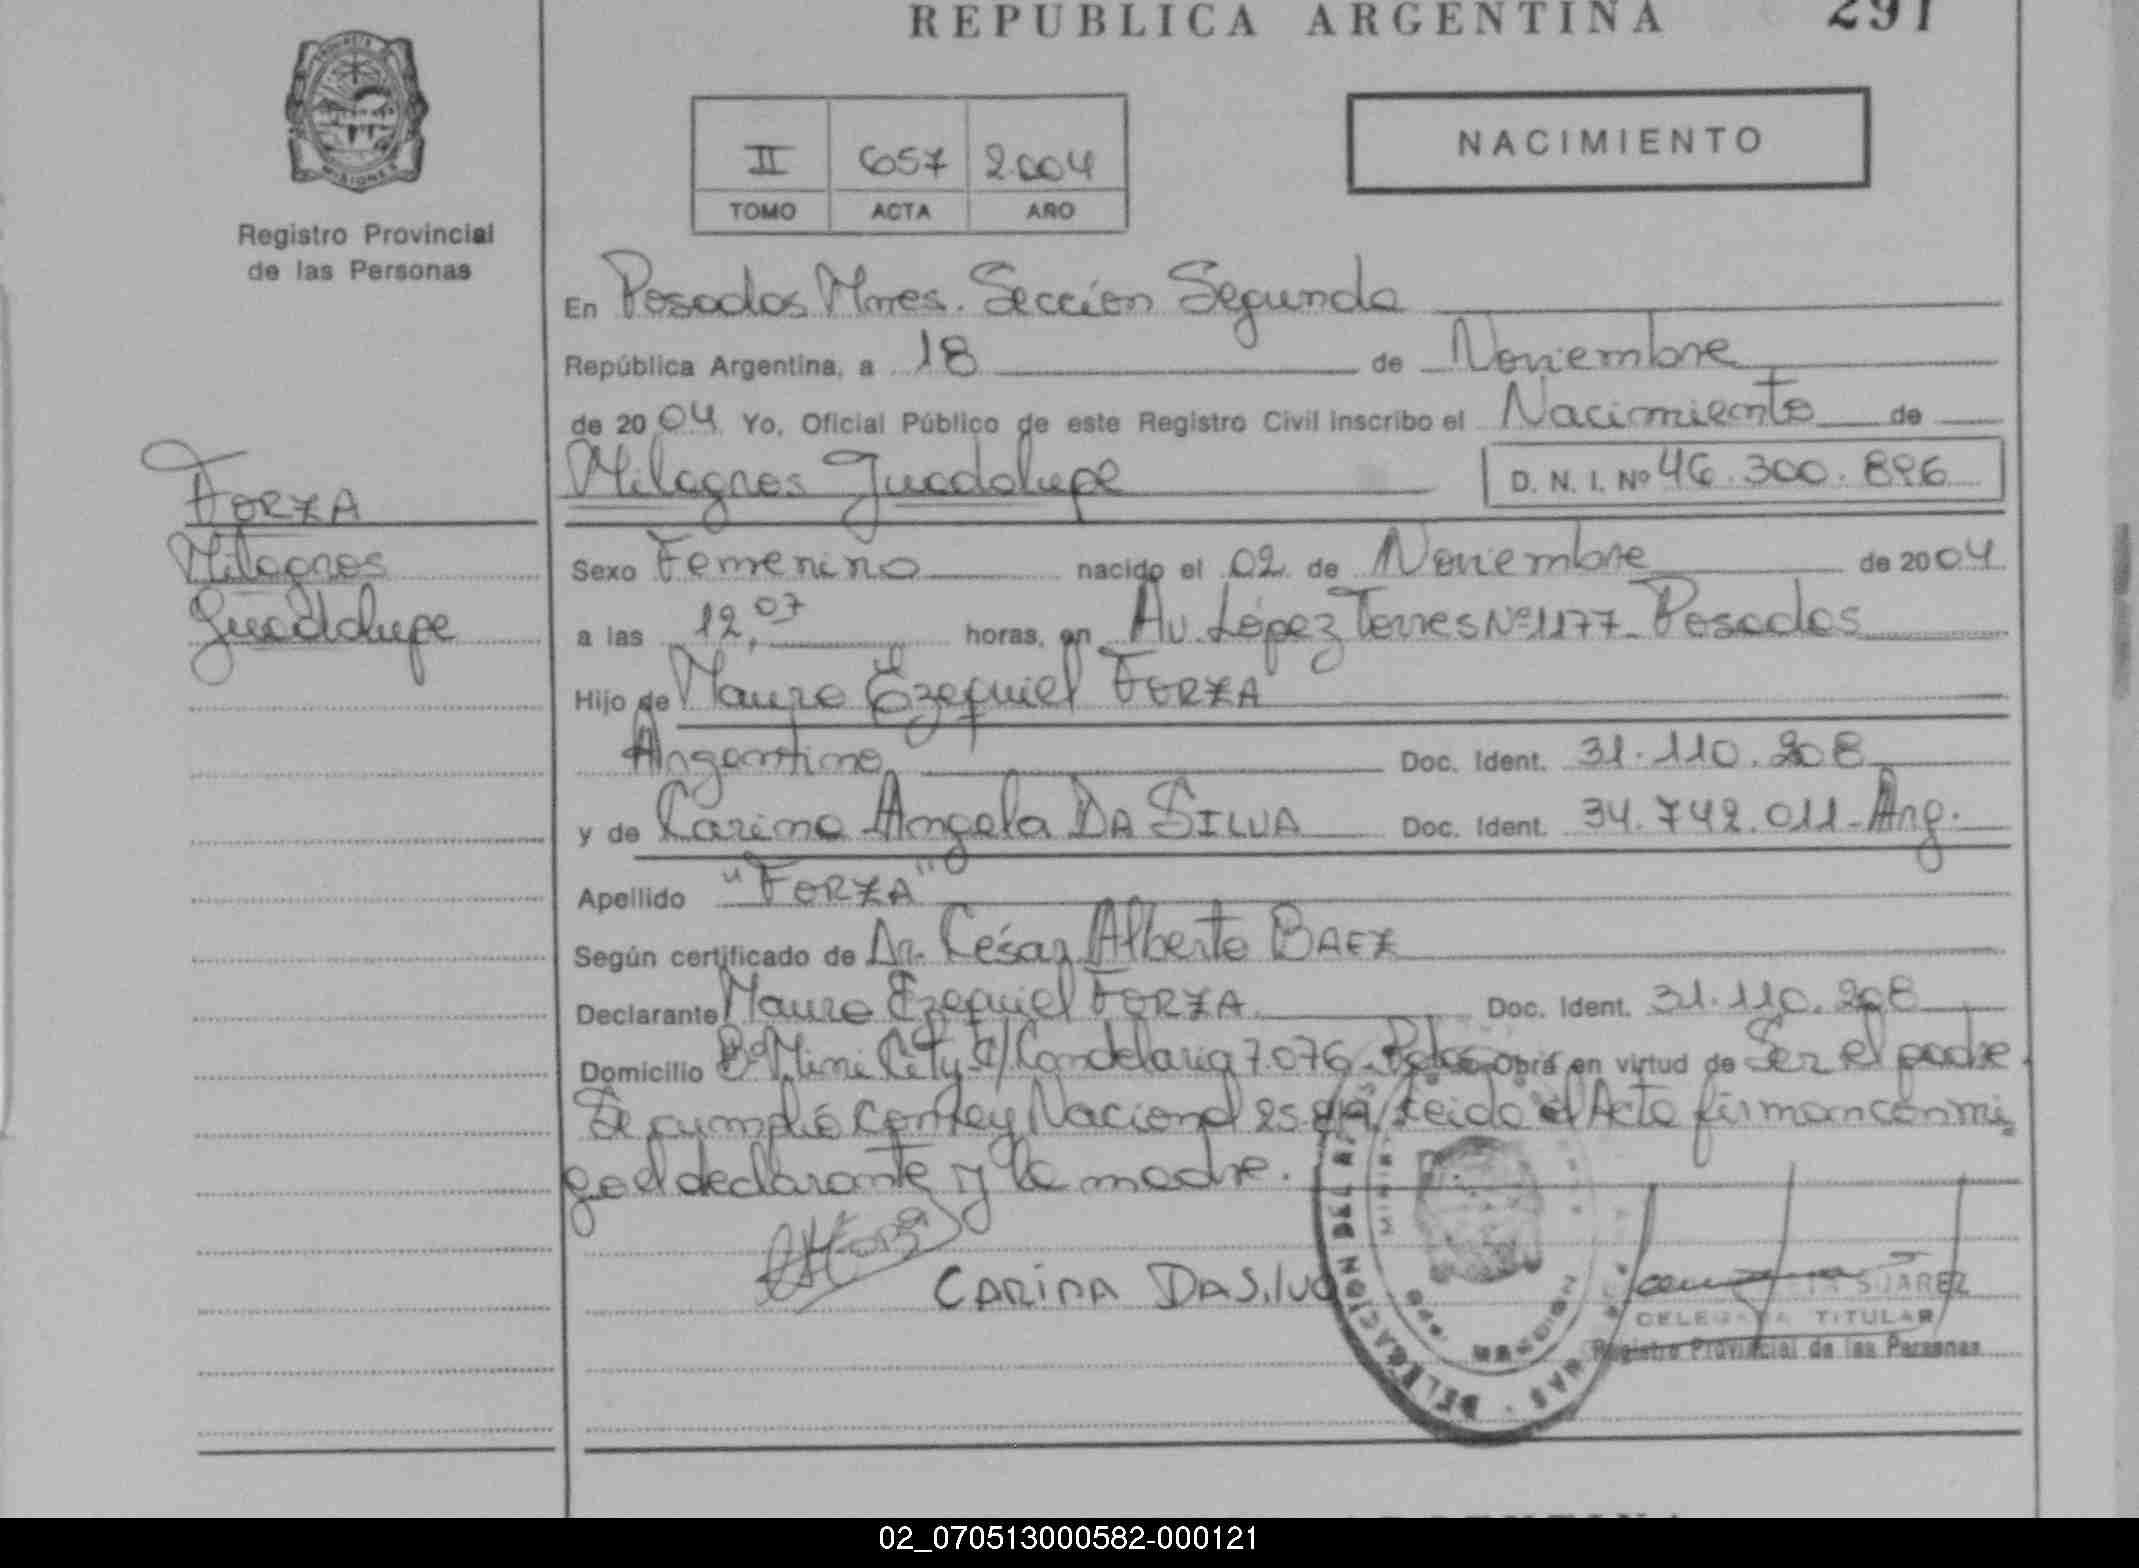 REPUBLICA ARGENTINA 291
II 657 2.004
TOMO ACTA AÑO
NACIMIENTO
Registro Provincial
de las Personas
En Posadas Mnes. Sección Segunda
República Argentina, a 18 de Noviembre
de 2004 Yo, Oficial Público de este Registro Civil inscribo el Nacimiento de
Milagros Guadalupe D. N. I. Nº 46.300.896
FORZA
Milagros
Guadalupe
Sexo Femenino nacido el 02 de Noviembre de 2004
a las 12,07 horas, en Av. López Torres Nº 1177 - Posadas
Hijo de Mauro Ezequiel FORZA
Argentino Doc. Ident. 31.110.208
y de Carina Angela DA SILVA Doc. Ident. 34.742.011 - Arg.
Apellido "FORZA"
Según certificado de Dr. César Alberto BAEZ
Declarante Mauro Ezequiel FORZA Doc. Ident. 31.110.208
Domicilio Bº Mini City C/ Candelaria 7.076 - Obra en virtud de Ser el padre.
Se cumplió con Ley Nacional Leida el Acta firman conmi
go el declarante y la madre.
CARINA DASILVA
SUAREZ
DELEGADA TITULAR
Registro Provincial de las Personas
DELEGACION
02_070513000582-000121